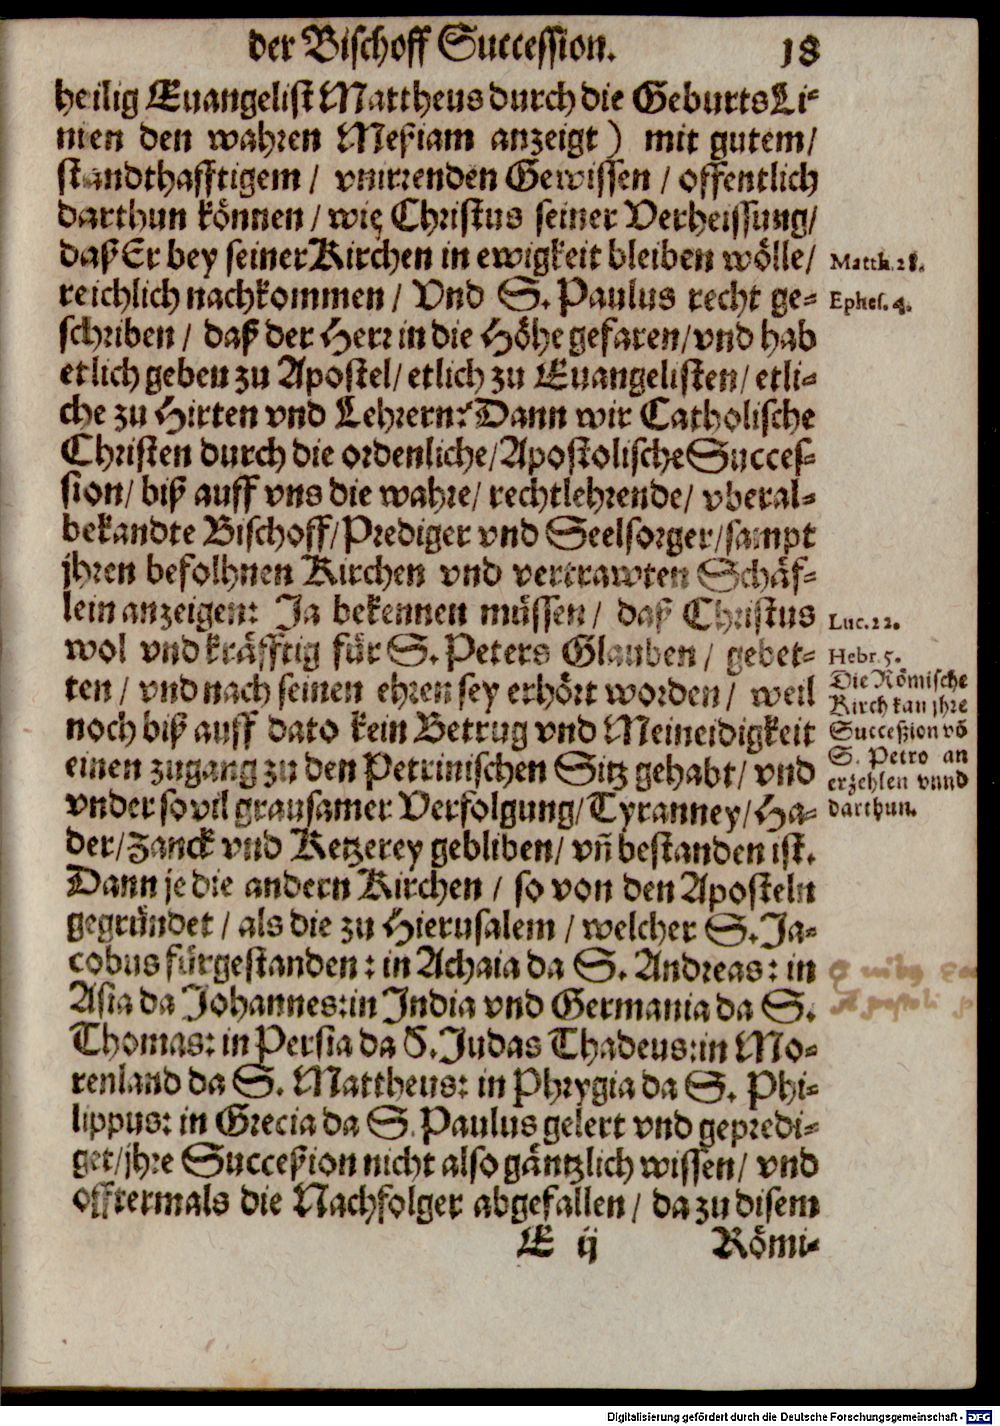 der Bischoff Succession. 18
heilig Euangelist Mattheus durch die Geburts Li-
nien den wahren Meßiam anzeigt) mit gutem/
standthafftigem / vnirrenden Gewissen / offentlich
darthun können / wie Christus seiner Verheissung/
daß Er bey seiner Kirchen in ewigkeit bleiben wölle/
reichlich nachkommen / Vnd S. Paulus recht ge-
schriben / daß der Herr in die Höhe gefaren/vnd hab
etlich geben zu Apostel/ etlich zu Euangelisten/ etli-
che zu Hirten vnd Lehrern: Dann wir Catholische
Christen durch die ordenliche/Apostolische Succes-
sion/ biß auff vns die wahre/ rechtlehrende/ vberal-
bekandte Bischoff/Prediger vnd Seelsorger/sampt
jhren befolhnen Kirchen vnd vertrawten Schäf-
lein anzeigen: Ja bekennen müssen / daß Christus
wol vnd kräfftig für S. Peters Glauben / gebet-
ten / vnd nach seinen ehren sey erhört worden / weil
noch biß auff dato kein Betrug vnd Meineidigkeit
einen zugang zu den Petrinischen Sitz gehabt/ vnd
vnder so vil grausamer Verfolgung/Tyranney/Ha-
der/Zanck vnd Ketzerey gebliben/ vñ bestanden ist.
Dann je die andern Kirchen / so von den Aposteln
gegründet / als die zu Hierusalem / welcher S. Ja-
cobus fürgestanden: in Achaia da S. Andreas: in
Asia da Johannes:in India vnd Germania da S.
Thomas: in Persia da S. Judas Thadeus:in Mo-
renland da S. Mattheus: in Phrygia da S. Phi-
lippus: in Grecia da S. Paulus gelert vnd gepredi-
get/jhre Succeßion nicht also gäntzlich wissen/ vnd
offtermals die Nachfolger abgefallen / da zu disem
E ij Römi-
Matth. 28.
Ephes. 4.
Luc. 22.
Hebr. 5.
Die Römische
Kirch kan jhre
Succeßion võ
S. Petro an
erzehlen vnnd
darthun.
Apostoli
Digitalisierung gefördert durch die Deutsche Forschungsgemeinschaft - DFG